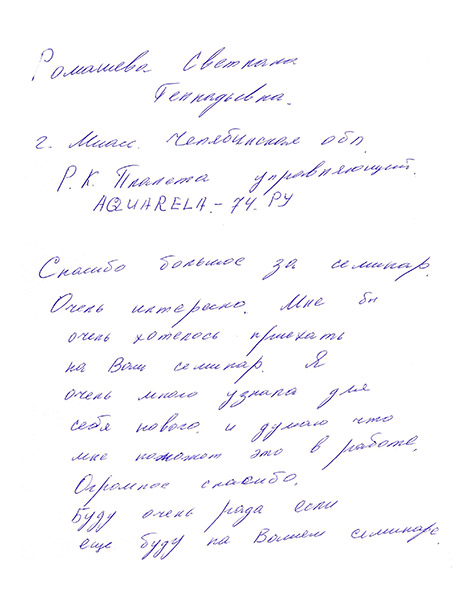 Ромашева Светлана
Геннадьевна.
г. Миасс. Челябинская обл.
Р.К. Планета управляющий.
AQUARELA-74.РУ
Спасибо большое за семинар.
Очень интересно. Мне бы
очень хотелось приехать
на Ваш семинар. Я
очень много узнала для
себя нового. и думаю что
мне поможет это в работе.
Огромное спасибо.
Буду очень рада если
еще буду на Вашем семинаре